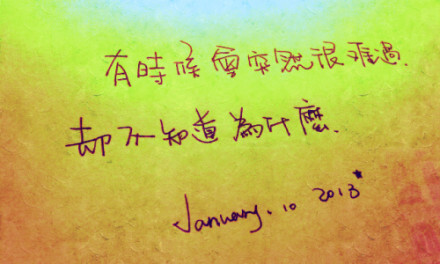 有時候會突然很難過.
却不知道為什麼.
January. 10 2013*